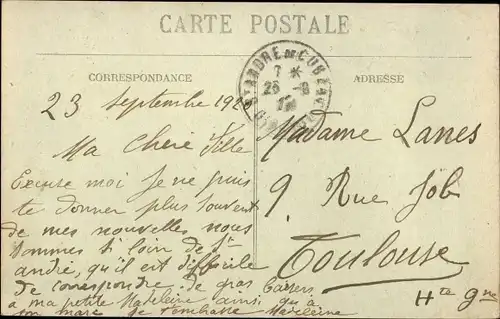 CARTE POSTALE
CORRESPONDANCE
ADRESSE
ST ANDRE DE CUBZAC
7 *
26 - 9
23 Septembre 192
Ma Chère Fille
Excuse moi Je ne puis
te donner plus souvent
de mes nouvelles nous
sommes si loin de St
andré, qu'il est difficile
de correspondre. de gros baisers
a ma petite Madeleine ainsi qu'a
ton mari Je t'embrasse
Madame Lanes
9, Rue Job
Toulouse
Hte Gne